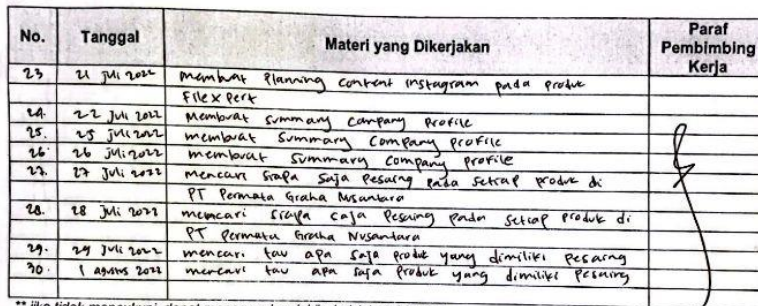 No. Tanggal Materi yang Dikerjakan Paraf Pembimbing Kerja
23 21 Juli 2022 membuat Planning content instagram pada produk
Filexpert
24. 22 Juli 2022 Membuat summary company profile
25. 25 Juli 2022 membuat summary company profile
26. 26 Juli 2022 membuat summary company profile
27. 27 Juli 2022 mencari siapa saja pesaing pada setiap produk di
PT Permata Graha Nusantara
28. 28 Juli 2022 mencari siapa saja pesaing pada setiap produk di
PT Permata Graha Nusantara
29. 29 Juli 2022 mencari tau apa saja produk yang dimiliki pesaing
30. 1 agustus 2022 mencari tau apa saja produk yang dimiliki pesaing
** jika tidak